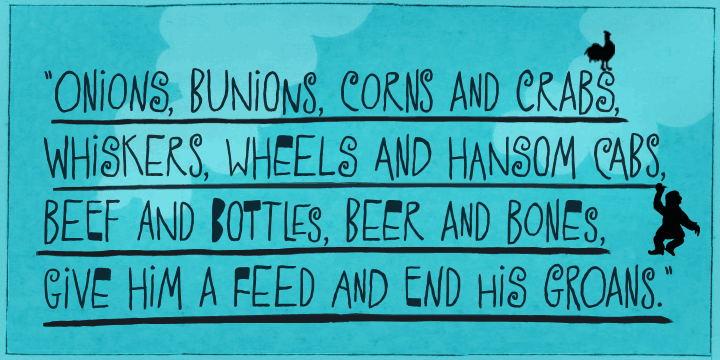 "ONiONS, BUNiONS, CORNS AND CRABS,
WHiSKERS, WHEELS AND HANSOM CABS,
BEEF AND BOTTLES, BEER AND BONES,
GiVE HiM A FEED AND END HiS GROANS."